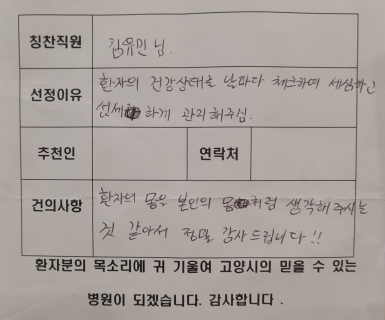 칭찬직원 김유민 님.
선정이유 환자의 건강상태를 날마다 체크하며 세심하고
섬세하게 관리해주심.
추천인 연락처
건의사항 환자의 몸을 본인의 몸처럼 생각해주시는
것 같아서 정말 감사드립니다!!
환자분의 목소리에 귀 기울여 고양시의 믿을 수 있는
병원이 되겠습니다. 감사합니다.